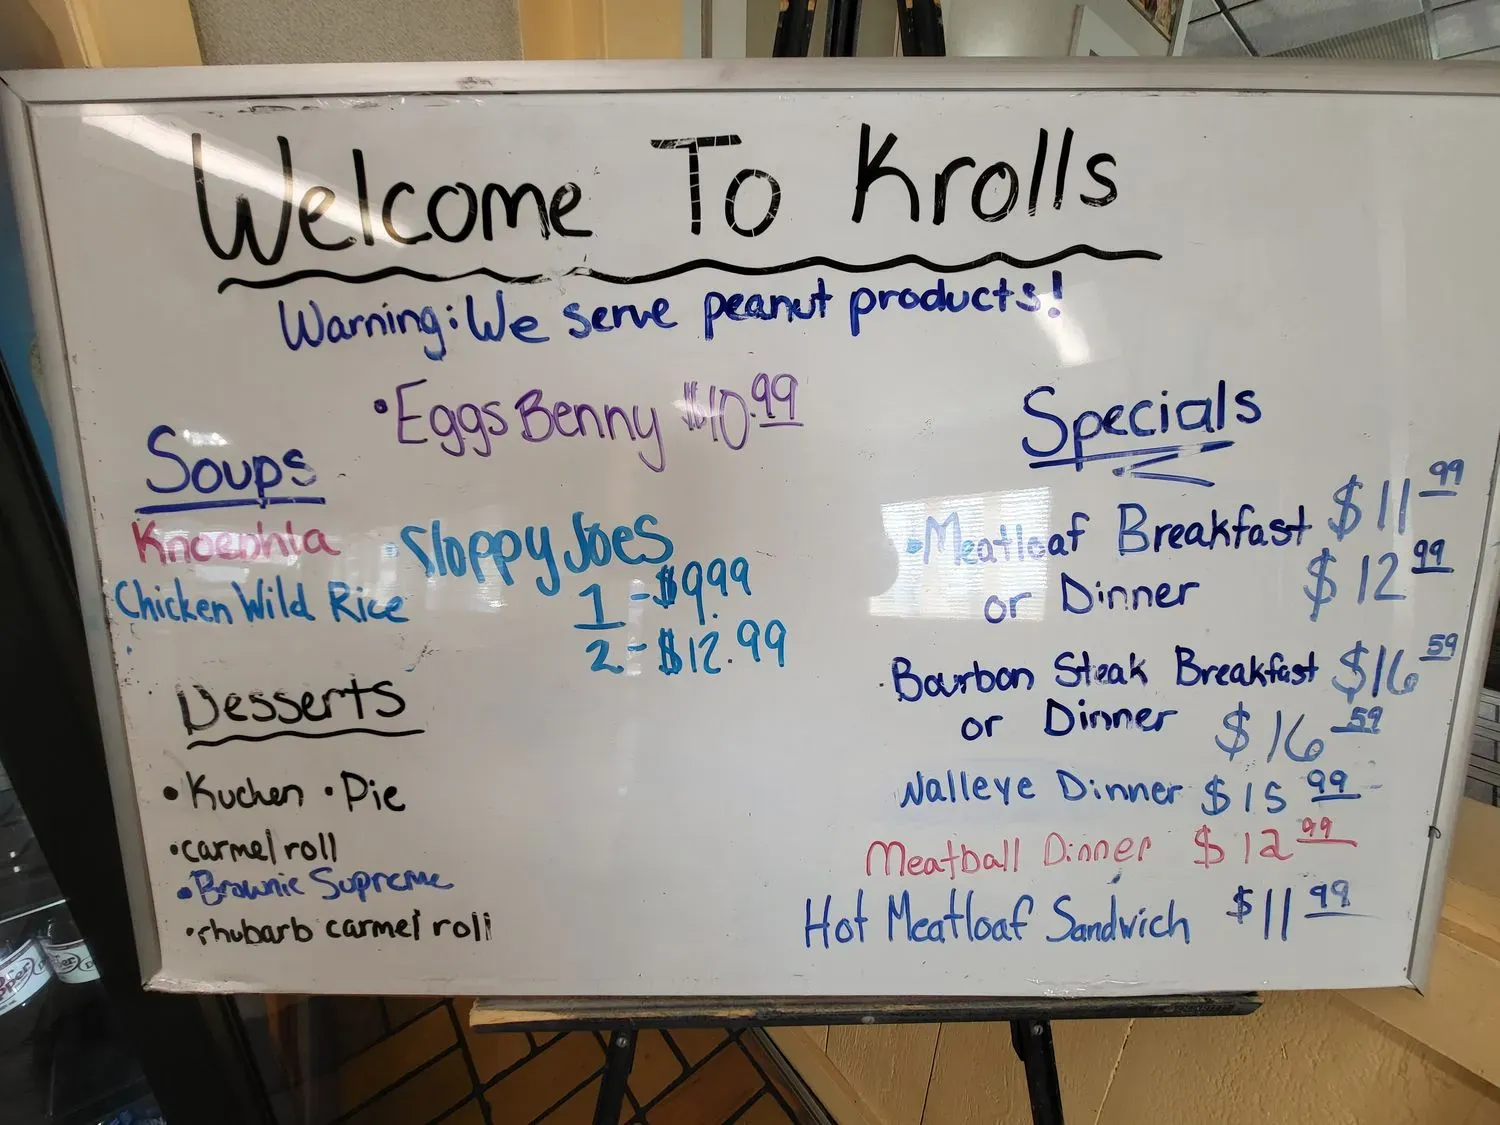 Welcome To Krolls
Warning: We serve peanut products!
• Eggs Benny $10.99
Soups
Knoephla
Chicken Wild Rice
• Sloppy Joes
1 - $9.99
2 - $12.99
Desserts
• Kuchen • Pie
• carmel roll
• Brownie Supreme
• rhubarb carmel roll
Specials
• Meatloaf Breakfast $11.99
or Dinner $12.99
• Bourbon Steak Breakfast $16.59
or Dinner $16.59
Walleye Dinner $15.99
Meatball Dinner $12.99
Hot Meatloaf Sandwich $11.99